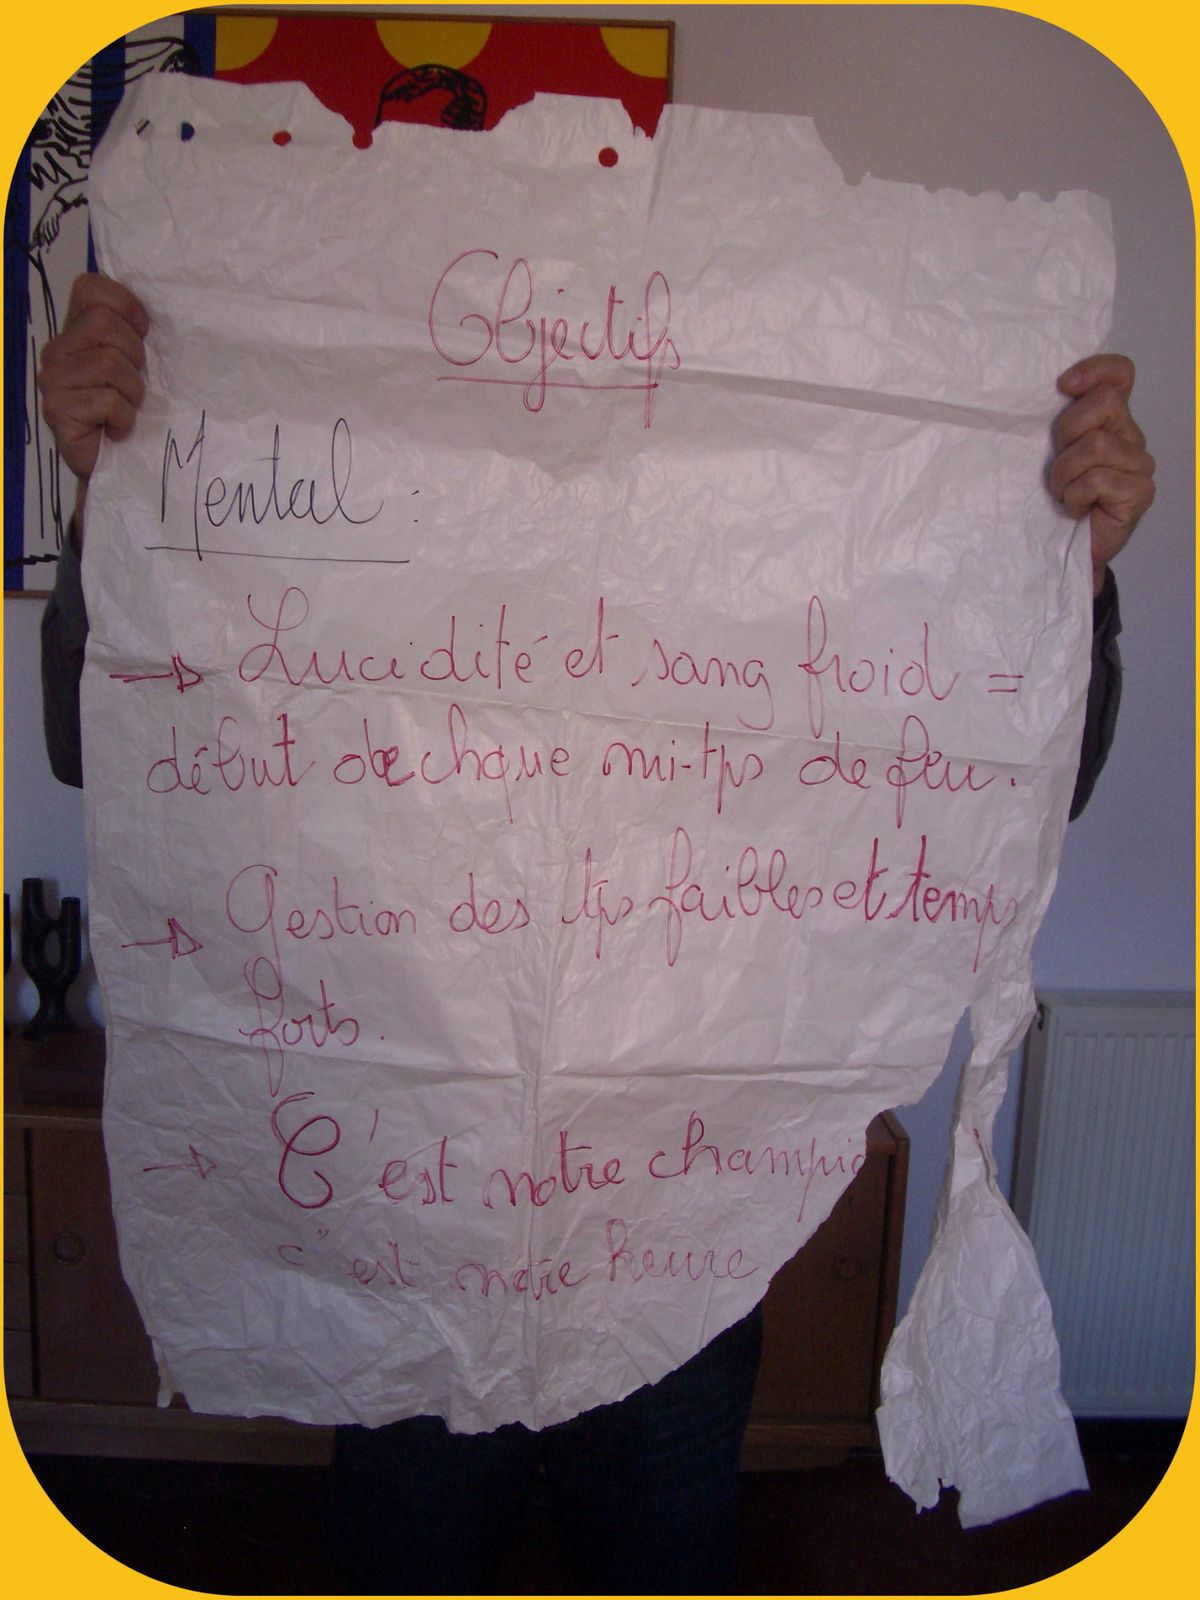 Objectifs
Mental :
→ Lucidité et sang froid =
début de chque mi-tps de feu.
→ Gestion des tps faibles et temps
forts.
→ C'est notre champio
c'est notre heure